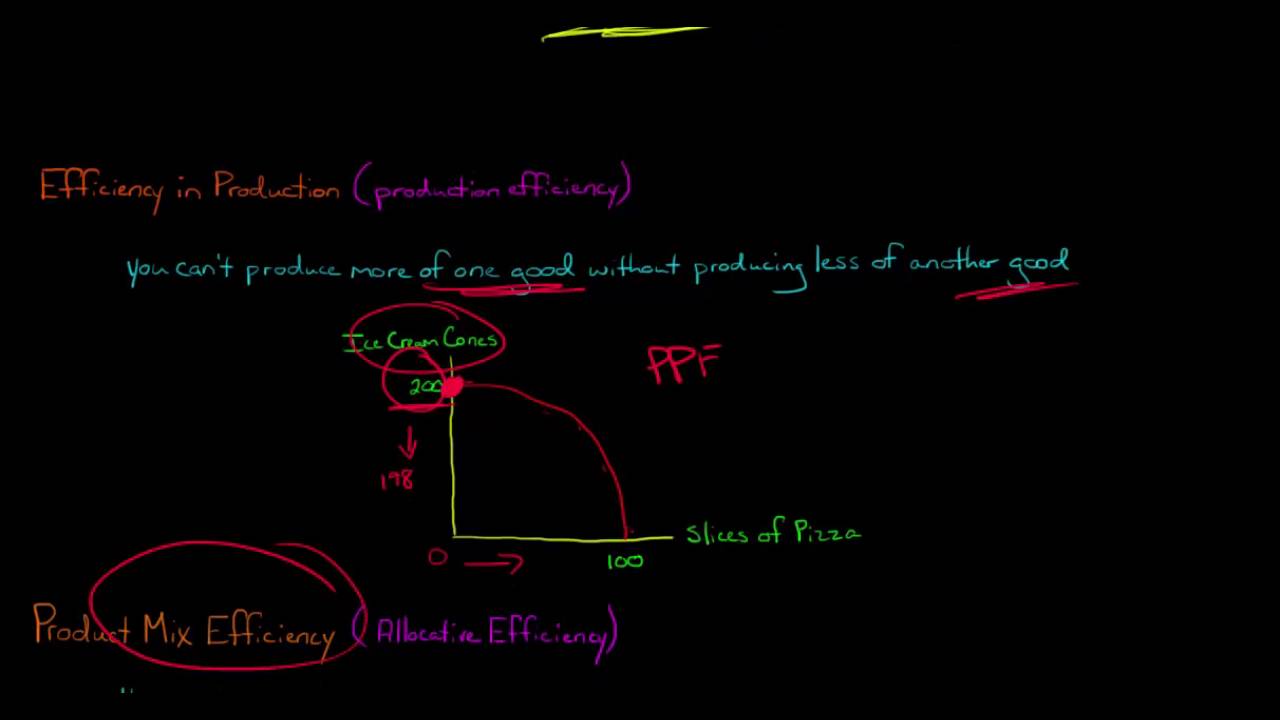 Efficiency in Production (production efficiency)
you can't produce more of one good without producing less of another good
Ice Cream Cones
PPF
200
198
Slices of Pizza
0
100
Product Mix Efficiency (Allocative Efficiency)